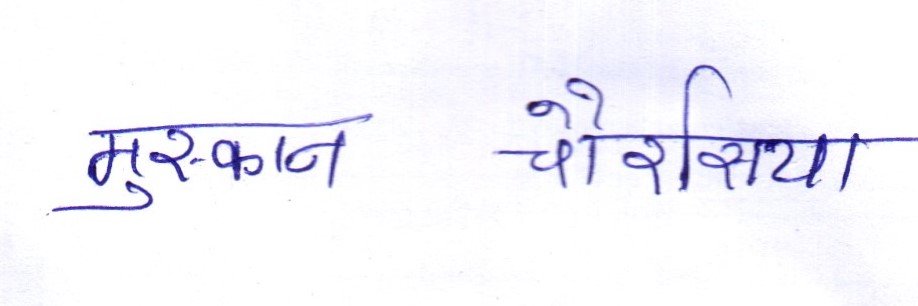 मुस्कान चौरसिया